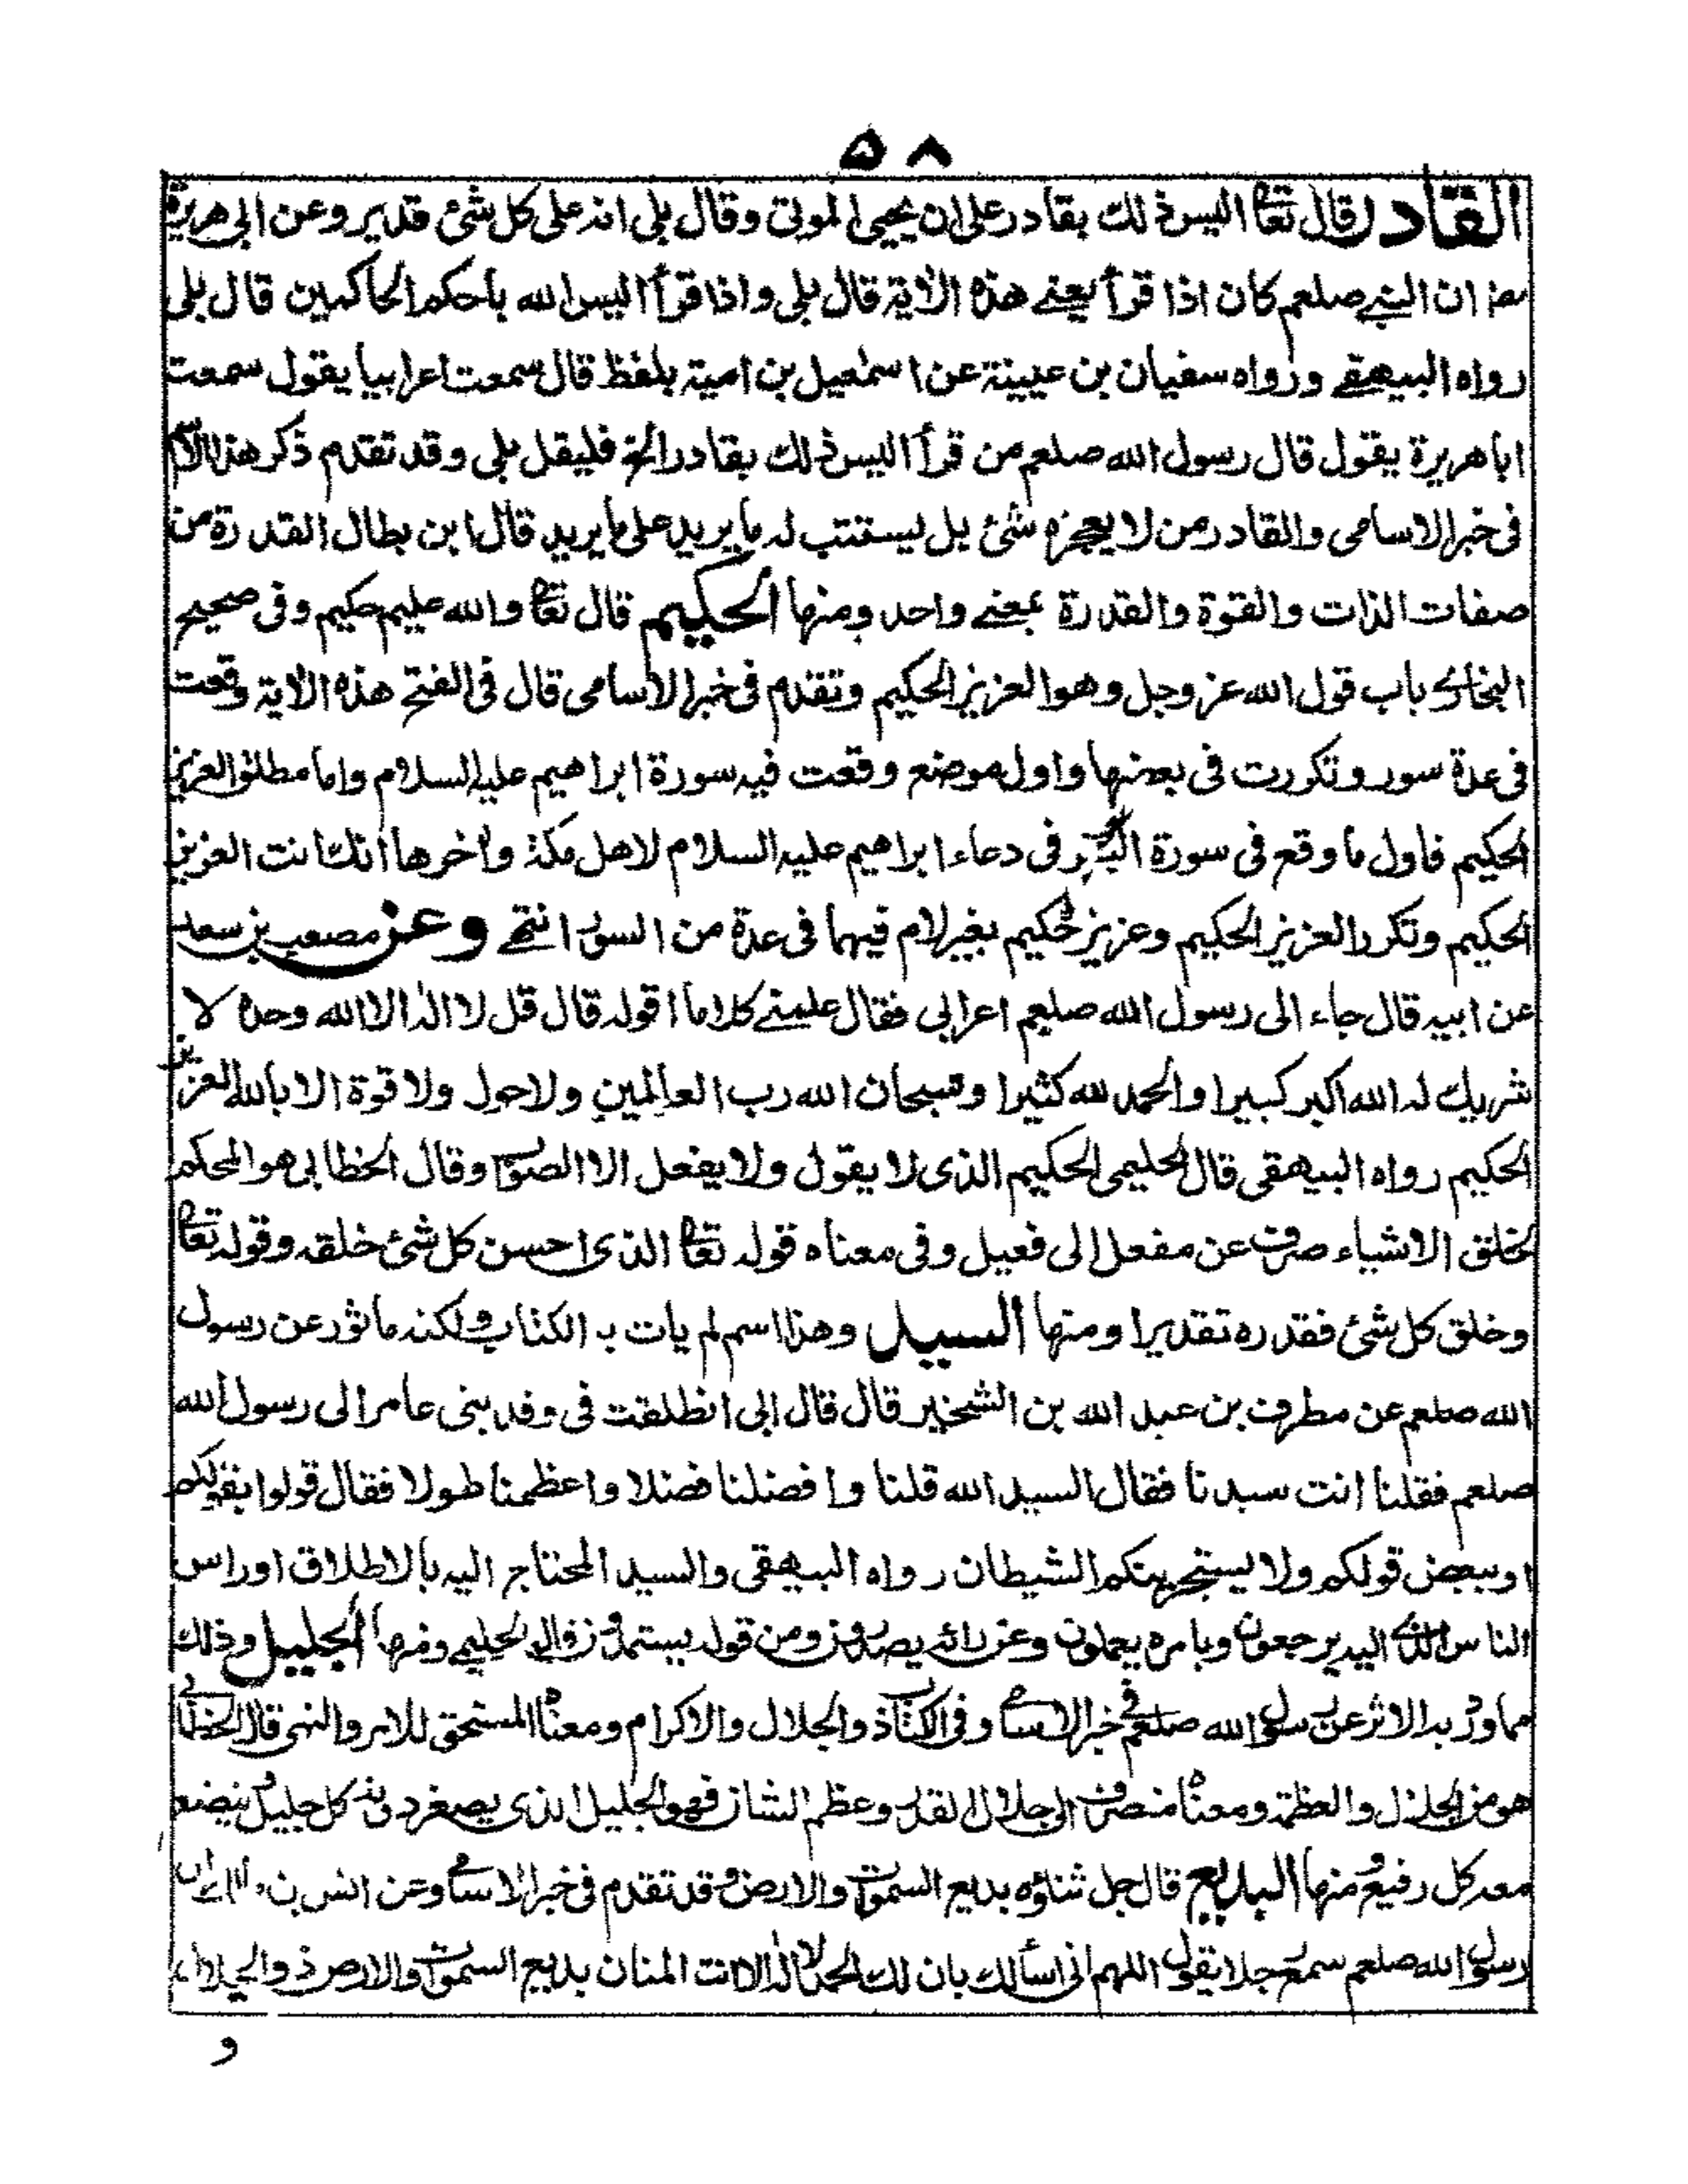 ٥٨
القادر قال تعا اليس ذلك بقادر على ان يحيى الموتى وقال بلى انه على كل شئ قدير وعن ابى هريرة
رضـ ان النبى صلعم كان اذا قرأ يعنى هذه الأية قال بلى واذا قرأ اليس الله باحكم الحاكمين قال بلى
رواه البيهقى ورواه سفيان بن عيينة عن اسمعيل بن امية بلفظ قال سمعت اعرابيا يقول سمعت
ابا هريرة يقول قال رسول الله صلعم من قرأ اليس ذلك بقادر الخ فليقل بلى وقد تقدم ذكر هذا الاسم
فى خبر الاسامى والقادر من لا يعجزه شئ بل يستتب له ما يريد على ما يريد قال ابن بطال القدرة من
صفات الذات والقوة والقدرة بمعنى واحد ومنها الحكيم قال تعا والله عليم حكيم وفى صحيح
البخارى باب قول الله عز وجل وهو العزيز الحكيم وتقدم فى خبر الاسامى قال فى الفتح هذه الأية وقعت
فى عدة سور وتكررت فى بعضها واول موضع وقعت فيه سورة ابراهيم عليه السلام واما مطلق العزيز
الحكيم فاول ما وقع فى سورة البقرة فى دعاء ابراهيم عليه السلام لاهل مكة وأخرها انك انت العزيز
الحكيم وتكرر العزيز الحكيم وعزيز حكيم بغير لام فيهما فى عدة من السور انتهى وعن مصعب بن سعد
عن ابيه قال جاء الى رسول الله صلعم اعرابى فقال علمنى كلاما اقوله قال قل لا اله الا الله وحده لا
شريك له الله اكبر كبيرا والحمد لله كثيرا وسبحان الله رب العالمين ولا حول ولا قوة الا بالله العزيز
الحكيم رواه البيهقى قال الحليمى الحكيم الذى لا يقول ولا يفعل الا الصواب وقال الخطابى هو المحكم
لخلق الاشياء صرف عن مفعل الى فعيل وفى معناه قوله تعا الذى احسن كل شئ خلقه وقوله تعا
وخلق كل شئ فقدره تقديرا ومنها السيد وهذا اسم لم يات به الكتاب ولكنه ماثور عن رسول
الله صلعم عن مطرف بن عبد الله بن الشخير قال قال ابى انطلقت فى وفد بنى عامر الى رسول الله
صلعم فقلنا انت سيدنا فقال السيد الله قلنا وافضلنا فضلا واعظمنا طولا فقال قولوا بقولكم
او ببعض قولكم ولا يستجرينكم الشيطان رواه البيهقى والسيد المحتاج اليه بالاطلاق او راس
الناس الذى اليه يرجعون وبامره يعملون وعن رائه يصدرون ومن قوله يستمدون قاله الحليمى ومنها الجليل وذلك
مما ورد به الاثر عن رسول الله صلعم فى خبر الاسامى وفى الكتاب ذو الجلال والاكرام ومعناه المستحق للامر والنهى قال الخطابى
هو من الجلال والعظمة ومعناه منصرف الى جلال القدر وعظم الشان فهو الجليل الذى يصغر دونه كل جليل ويتضع
معه كل رفيع ومنها البديع قال جل ثناؤه بديع السموات والارض وقد تقدم فى خبر الاسامى وعن انس بن
رسول الله صلعم سمع رجلا يقول اللهم انى اسألك بان لك الحمد لا اله الا انت المنان بديع السموات والارض ذو الجلال
و